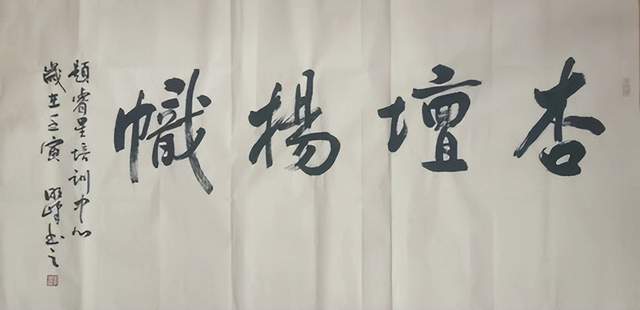 杏壇揚幟
題睿星培訓中心
歲在壬寅 明峰书之